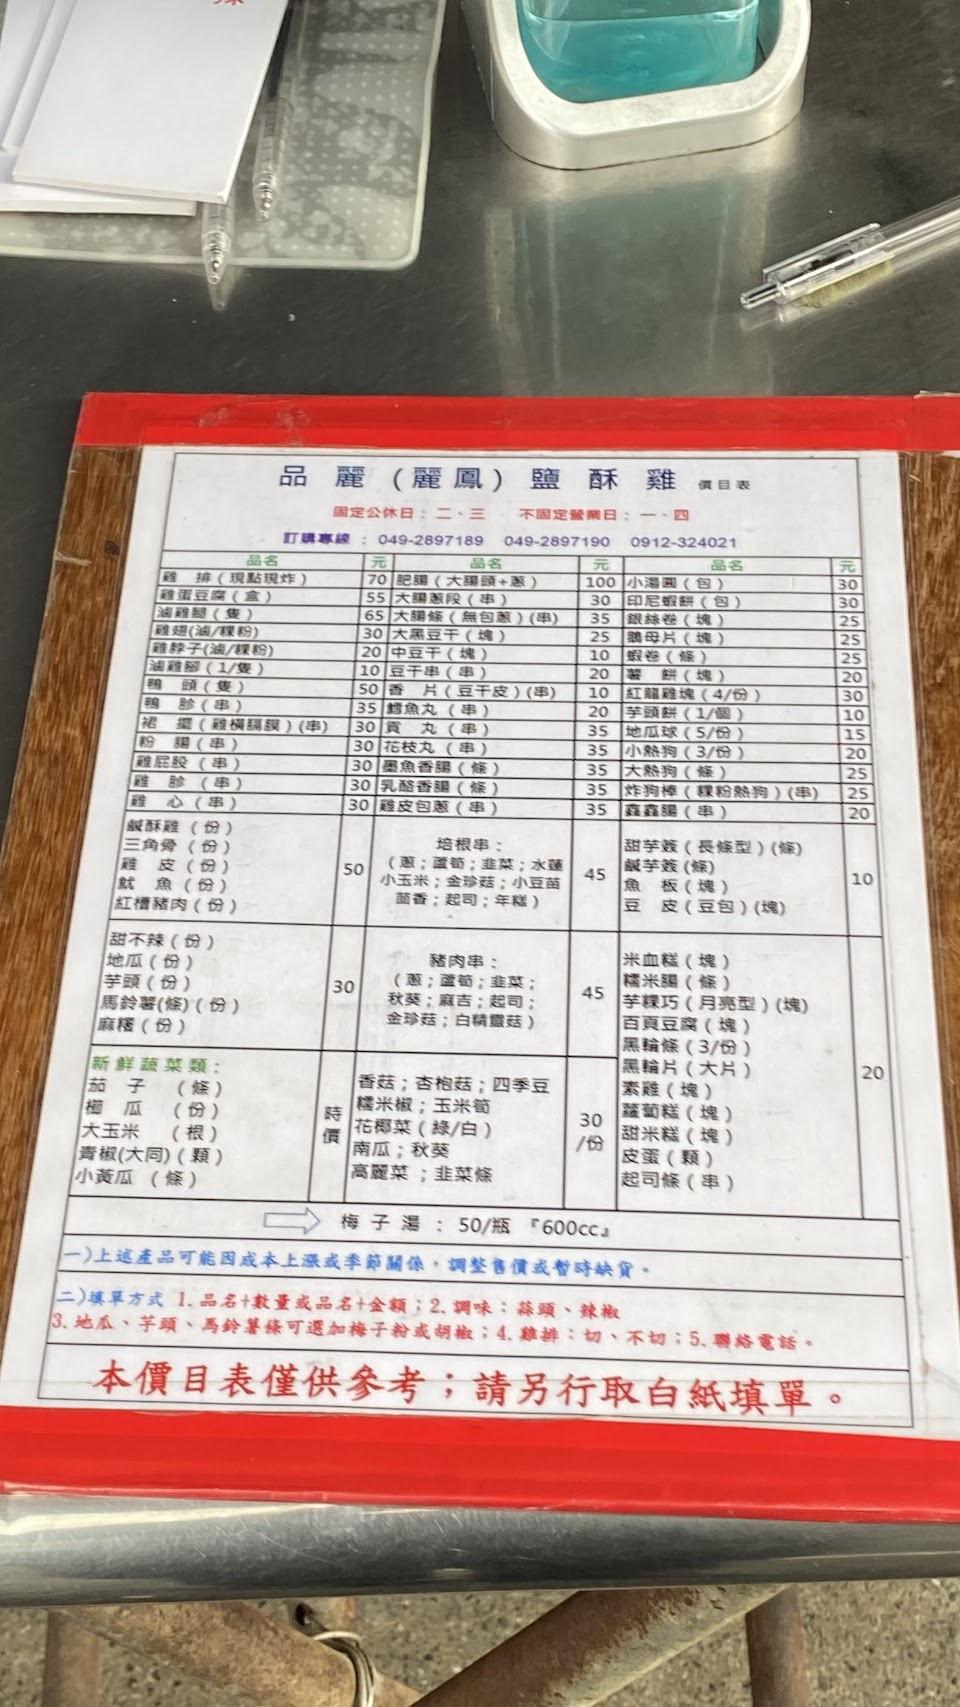 品 麗 (麗鳳) 鹽 酥 雞 價目表
固定公休日：二、三 不固定營業日：一、四
訂購專線 ： 049-2897189 049-2897190 0912-324021
品名 元 品名 元 品名 元
雞 排（現點現炸） 70 肥腸（大腸頭+蔥） 100 小湯圓（包） 30
雞蛋豆腐（盒） 55 大腸蔥段（串） 30 印尼蝦餅（包） 30
滷雞腿（隻） 65 大腸條（無包蔥）(串) 35 銀絲卷（塊） 25
雞翅(滷/粿粉) 30 大黑豆干（塊） 25 鵝母片（塊） 25
雞脖子(滷/粿粉) 20 中豆干（塊） 10 蝦卷（條） 25
滷雞腳（1/隻） 10 豆干串（串） 20 薯 餅（塊） 20
鴨 頭（隻） 50 香 片（豆干皮）(串) 10 紅龍雞塊（4/份） 30
鴨 胗（串） 35 鱈魚丸（串） 20 芋頭餅（1/個） 10
裙 擺（雞橫膈膜）(串) 30 貢 丸（串） 35 地瓜球（5/份） 15
粉 腸（串） 30 花枝丸（串） 35 小熱狗（3/份） 20
雞屁股（串） 30 墨魚香腸（條） 35 大熱狗（條） 25
雞 胗（串） 30 乳酪香腸（條） 35 炸狗棒（粿粉熱狗）(串) 25
雞 心（串） 30 雞皮包蔥（串） 35 鑫鑫腸（串） 20
鹹酥雞（份）
三角骨（份）
雞 皮（份）
魷 魚（份）
紅槽豬肉（份）
50
培根串：
（蔥；蘆筍；韭菜；水蓮
小玉米；金珍菇；小豆苗
茴香；起司；年糕）
45
甜芋簽（長條型）(條)
鹹芋簽(條)
魚 板（塊）
豆 皮（豆包）(塊)
10
甜不辣（份）
地瓜（份）
芋頭（份）
馬鈴薯(條)（份）
麻糬（份）
30
豬肉串：
（蔥；蘆筍；韭菜；
秋葵；麻吉；起司；
金珍菇；白精靈菇）
45
米血糕（塊）
糯米腸（條）
芋粿巧（月亮型）(塊)
百頁豆腐（塊）
黑輪條（3/份）
黑輪片（大片）
素雞（塊）
蘿蔔糕（塊）
甜米糕（塊）
皮蛋（顆）
起司條（串）
20
新鮮蔬菜類：
茄 子 （條）
櫛 瓜 （份）
大玉米 （根）
青椒(大同)（顆）
小黃瓜 （條）
時價
香菇；杏袍菇；四季豆
糯米椒；玉米筍
花椰菜（綠/白）
南瓜；秋葵
高麗菜 ；韭菜條
30
/份
梅 子 湯 ： 50/瓶 『600cc』
一)上述產品可能因成本上漲或季節關係，調整售價或暫時缺貨。
二)填單方式 1.品名+數量或品名+金額；2.調味：蒜頭、辣椒
3.地瓜、芋頭、馬鈴薯條可選加梅子粉或胡椒；4.雞排：切、不切；5.聯絡電話。
本價目表僅供參考；請另行取白紙填單。